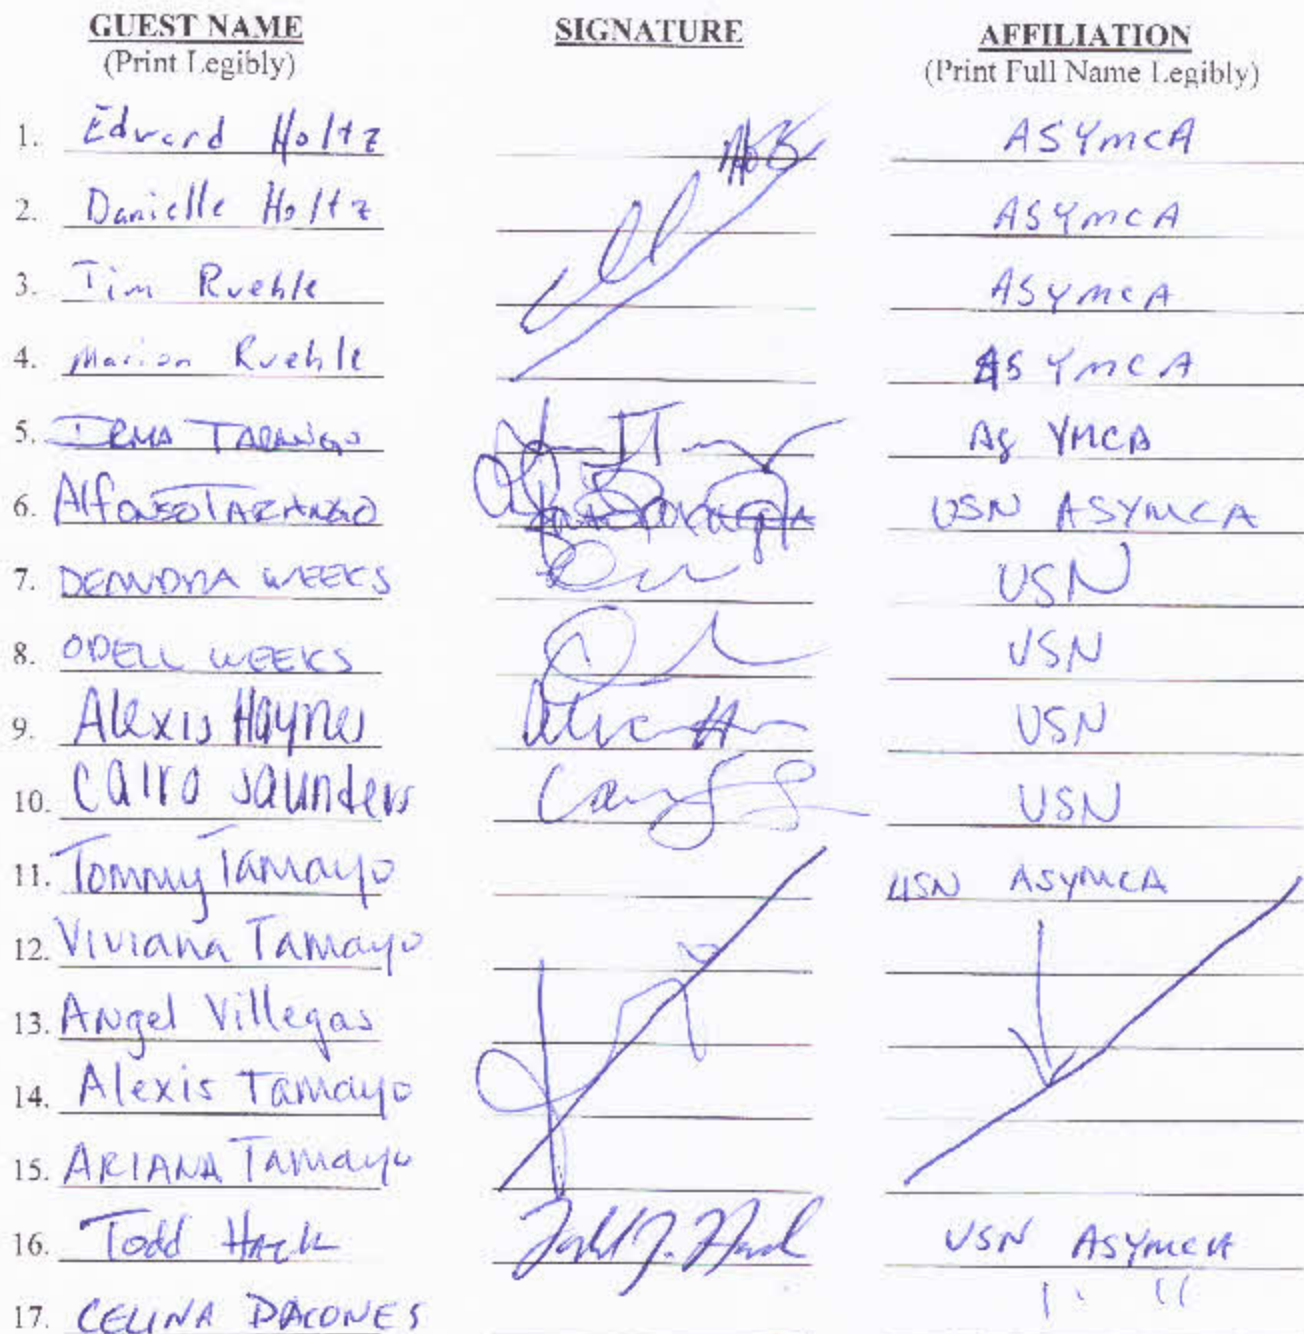 GUEST NAME SIGNATURE AFFILIATION
(Print Legibly) (Print Full Name Legibly)
1. Edward Holtz ASYMCA
2. Danielle Holtz ASYMCA
3. Tim Ruehle ASYMCA
4. Marion Ruehle AS YMCA
5. IRMA TARANGO AS YMCA
6. Alfonso TARANGO USN ASYMCA
7. DEANDRA WEEKS USN
8. ODELL WEEKS USN
9. Alexis Haynes USN
10. Cairo Saunders USN
11. Tommy Tamayo USN ASYMCA
12. Viviana Tamayo
13. Angel Villegas
14. Alexis Tamayo
15. ARIANA Tamayo
16. Todd Hack Todd J. Hack USN ASYMCA
17. CELINA DACONES " "